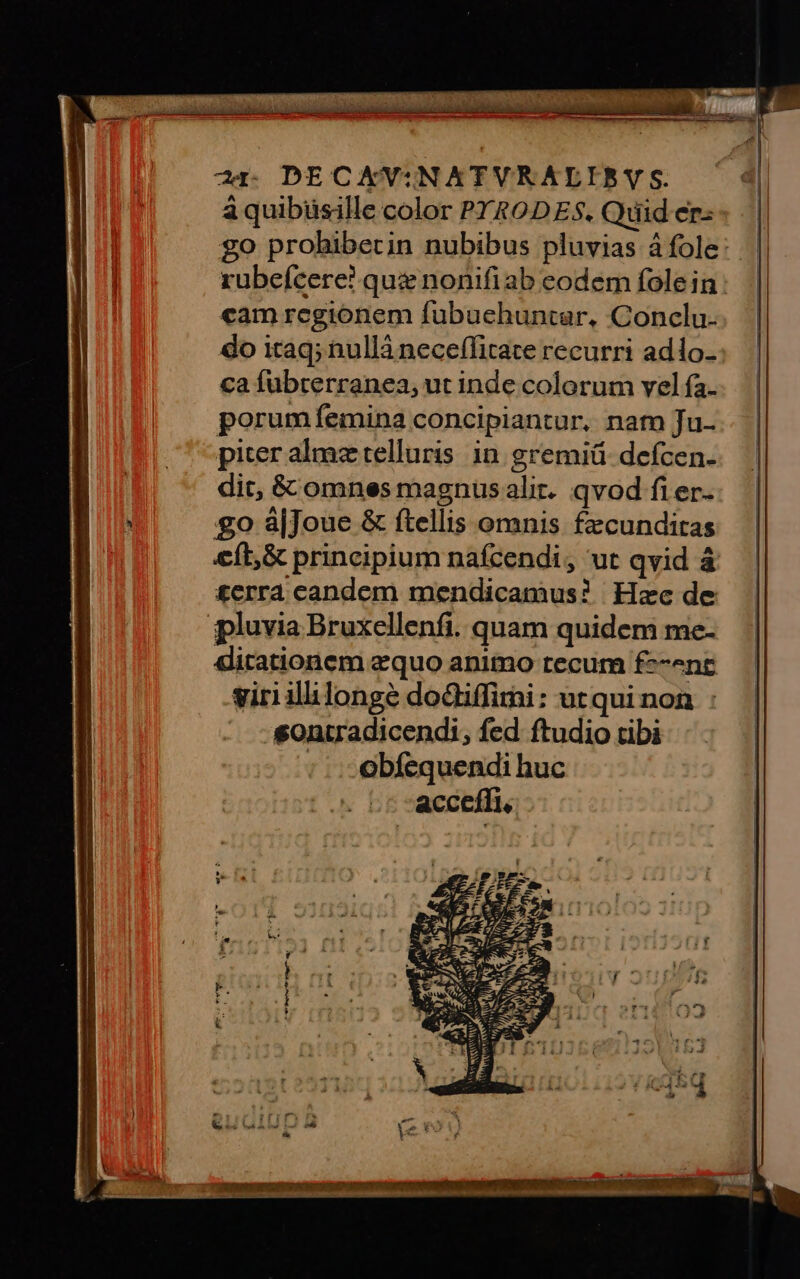 24. DE CAV: NATVRALIBVS.
à quibus ille color PYRODES. Quid er-
go prohibet in nubibus pluvias á ſole
rubeſcere? quæ non iſi ab eodem ſole in
eam regionem ſubuehuntur. Conclu-
do itaq; nullá neceſſitate recurri ad lo-
ca ſubterranea, ut inde colorum vel ſa-
porum ſemina concipiantur. nam Ju-
piter almæ telluris in gremiũ deſcen-
dit, & omnes magnus alit. qvod ſi er-
go á Joue & ſtellis omnis fæcunditas
eſt, & principium naſcendi, ut qvid á
terrá eandem mendicamus? Hæc de
pluvia Bruxellenſi. quam quidem me-
ditationem æquo animo tecum
viri illi longè doctiſſimi: ut qui non
contradicendi, ſed ſtudio tibi
obſequendi huc
acceſſi.